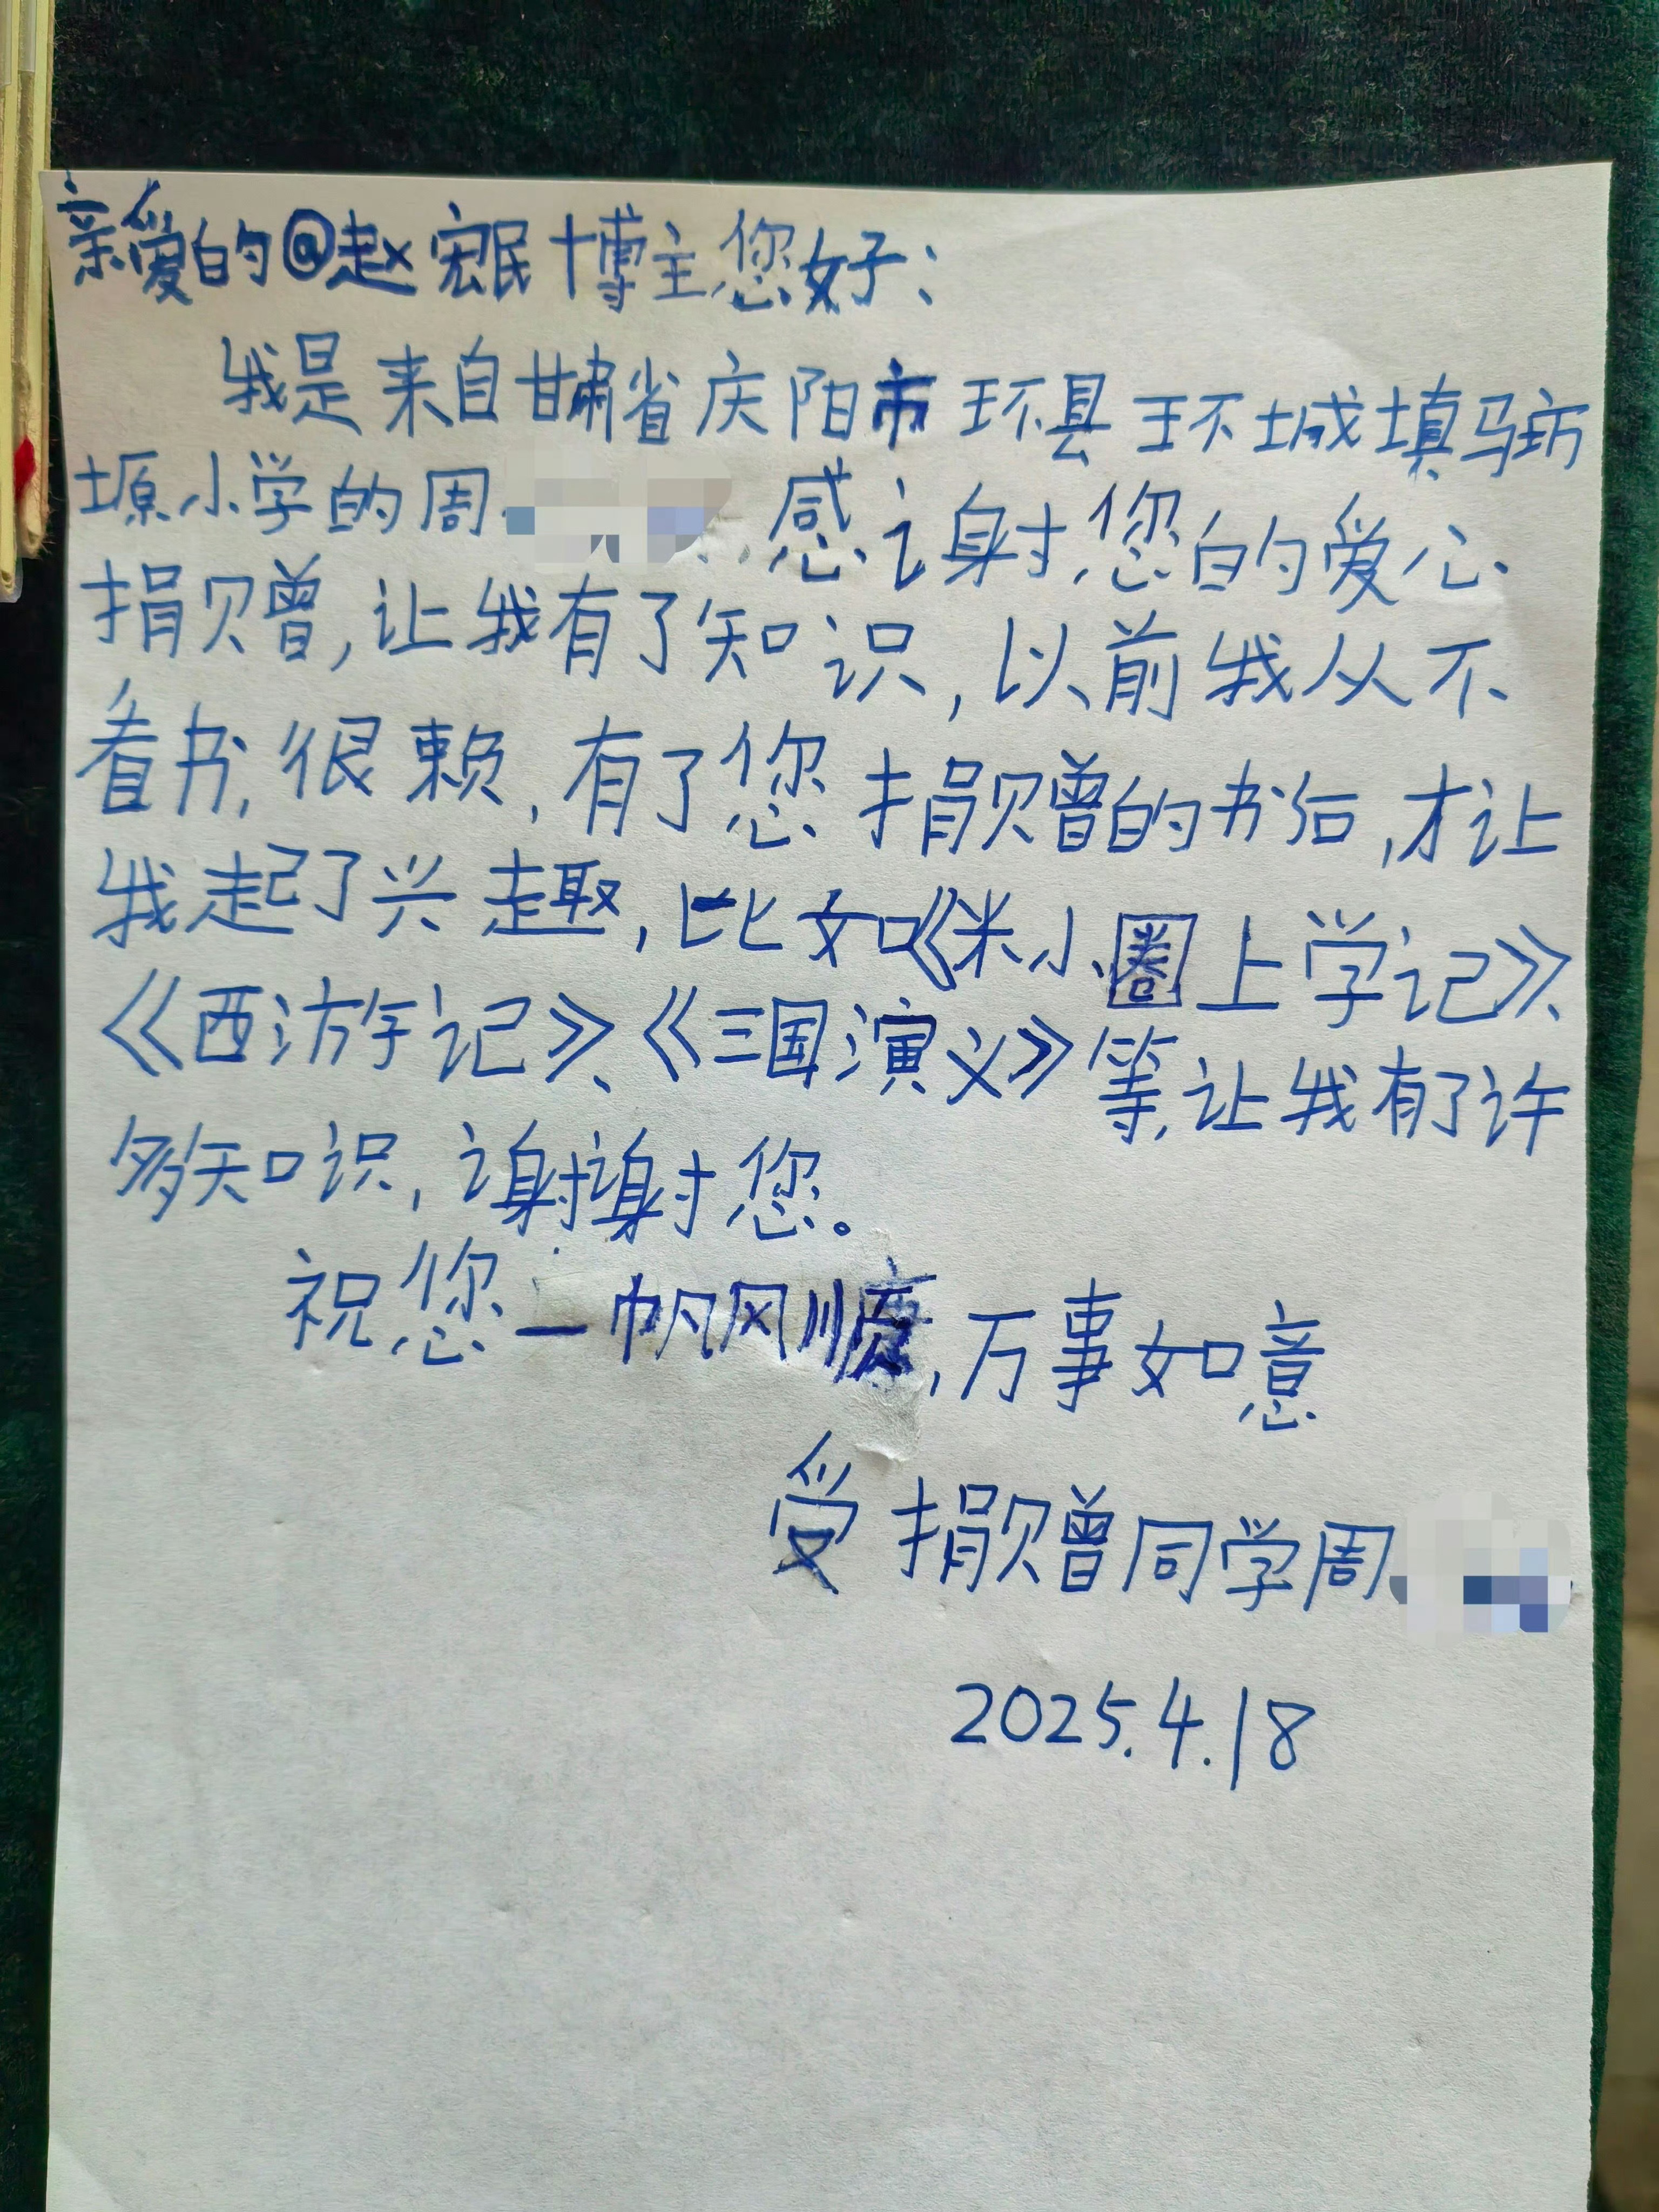 亲爱的@赵宏民博主您好：
我是来自甘肃省庆阳市环县环城填马坊
塬小学的周 感谢您的爱心
捐赠，让我有了知识，以前我从不
看书，很赖，有了您捐赠的书后，才让
我起了兴趣，比如《米小圈上学记》、
《西游记》、《三国演义》等，让我有了许
多知识，谢谢您。
祝您一帆风顺，万事如意
受捐赠同学周
2025.4.18